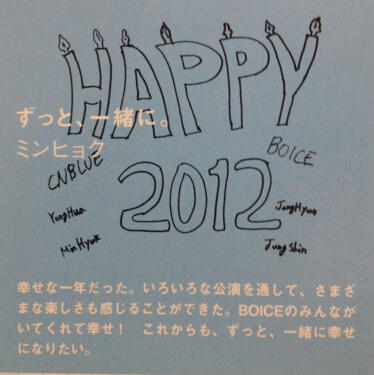 HAPPY
ずっと、一緒に。
ミンヒョク
BOICE
CNBLUE
2012
YongHwa
JongHyun
MinHyuk
JungShin
幸せな一年だった。いろいろな公演を通して、さまざ
まな楽しさも感じることができた。BOICEのみんなが
いてくれて幸せ！　これからも、ずっと、一緒に幸せ
になりたい。